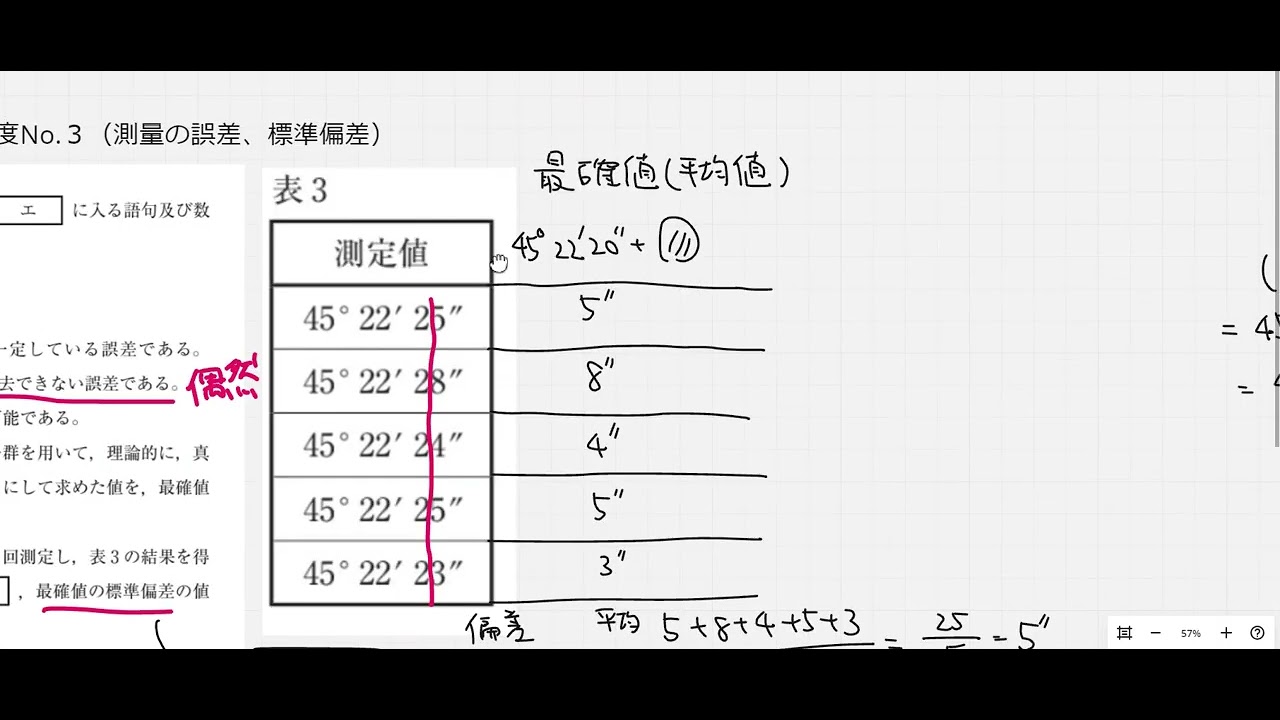 度No.３（測量の誤差、標準偏差）
エ に入る語句及び数
一定している誤差である。
去できない誤差である。
偶然
可能である。
群を用いて，理論的に，真
にして求めた値を，最確値
回測定し，表３の結果を得
，最確値の標準偏差の値
表３
測定値
45° 22′ 25″
45° 22′ 28″
45° 22′ 24″
45° 22′ 25″
45° 22′ 23″
最確値(平均値)
45° 22′ 20″ +
5″
8″
4″
5″
3″
偏差
平均 5+8+4+5+3 = 25 = 5″
= 45
=
57%